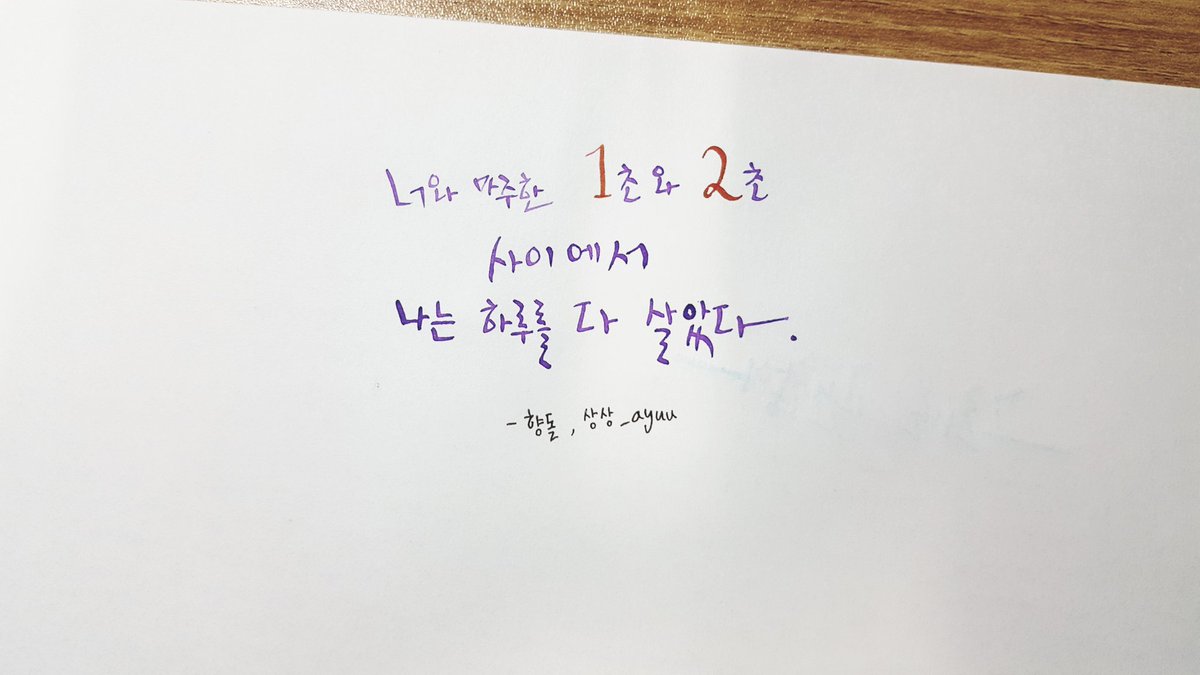 너와 마주한 1초와 2초
사이에서
나는 하루를 다 살았다.
- 향돌, 상상_ayuu